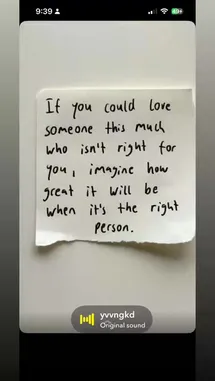 9:39
If you could love
someone this much
who isn't right for
you, imagine how
great it will be
when it's the right
person.
yvvngkd
Original sound